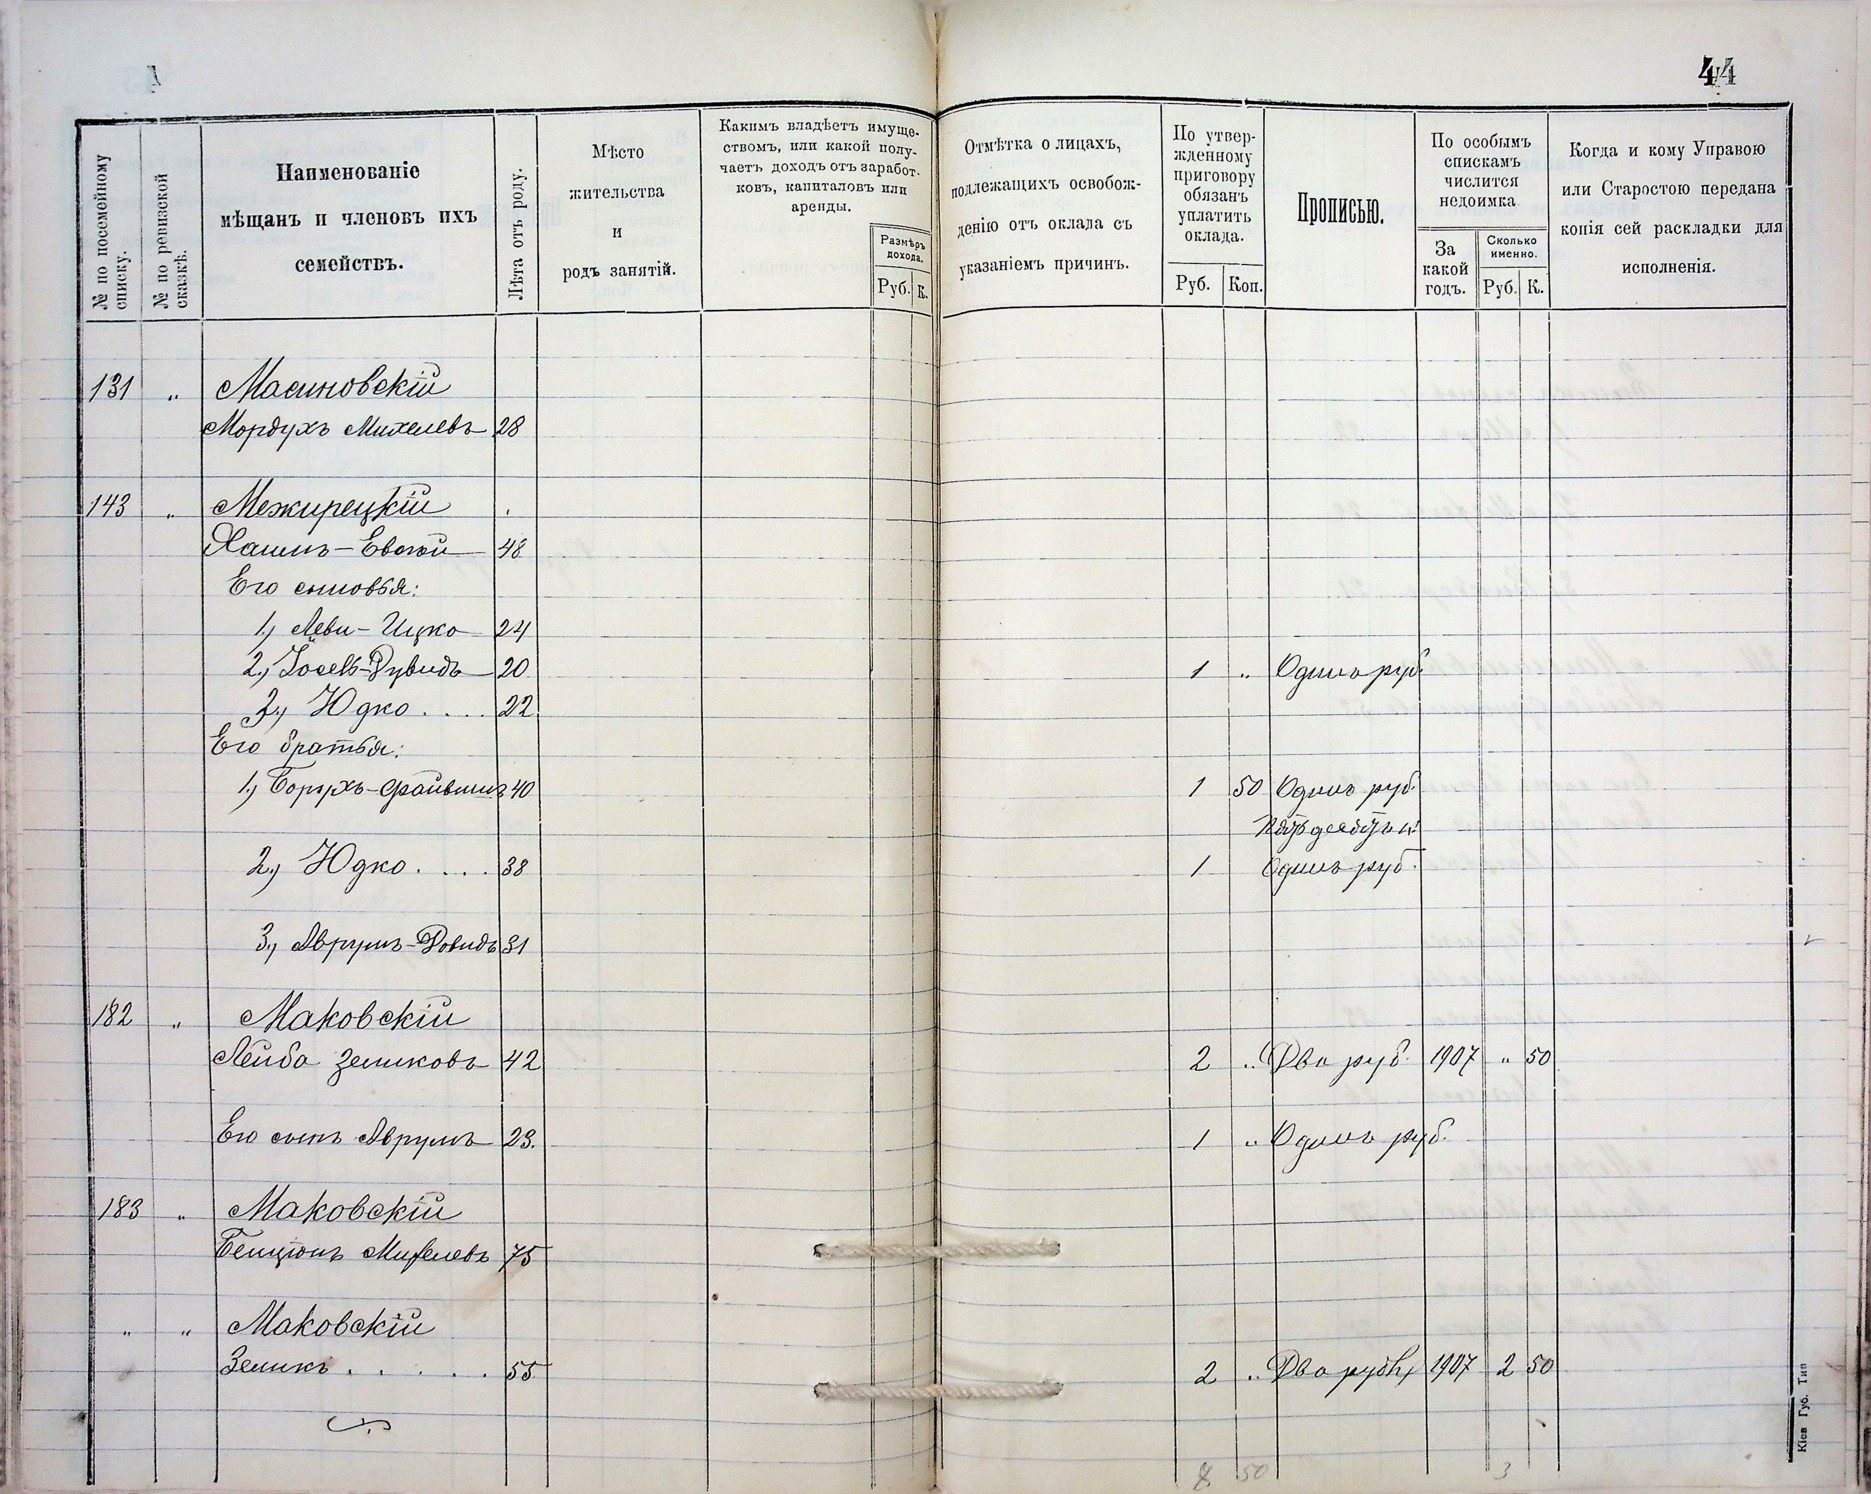 44
№ по посемейному списку.
№ по ревизской сказкѣ.
Наименованіе
мѣщанъ и членовъ ихъ
семействъ.
Лѣта отъ роду.
Мѣсто
жительства
и
родъ занятій.
Какимъ владѣетъ имуще-
ствомъ, или какой полу-
чаетъ доходъ отъ заработ-
ковъ, капиталовъ или
аренды.
Размѣръ
дохода.
Руб. К.
Отмѣтка о лицахъ,
подлежащихъ освобож-
денію отъ оклада съ
указаніемъ причинъ.
По утвер-
жденному
приговору
обязанъ
уплатить
оклада.
Руб. Коп.
Прописью.
По особымъ
спискамъ
числится
недоимка
За
какой
годъ.
Сколько
именно.
Руб. К.
Когда и кому Управою
или Старостою передана
копія сей раскладки для
исполненія.
131 " Масиновскій
Мордухъ Михелевъ 28
143 " Межирецкій
Хаимъ-Евсей 48
Его сыновья:
1.) Леви-Ицко 24
2.) Іосель-Дувидъ 20 1 " Одинъ руб
3.) Юдко . . . . 22
Его братья:
1.) Борухъ-Файвишъ 40 1 50 Одинъ руб.
2.) Юдко . . . . 38 1 Одинъ руб.
3.) Аврумъ-Довидъ 31
182 " Маковскій
Лейба Зеликовъ 42 2 " Два руб. 1907 " 50
Его сынъ Аврумъ 23. 1 " Одинъ руб.
183 " Маковскій
Бенціонъ Михелевъ 75
" " Маковскій
Зеликъ . . . . . 55 2 " Два рубл 1907 2 50
8 50 3
Кіев Губ. Тип